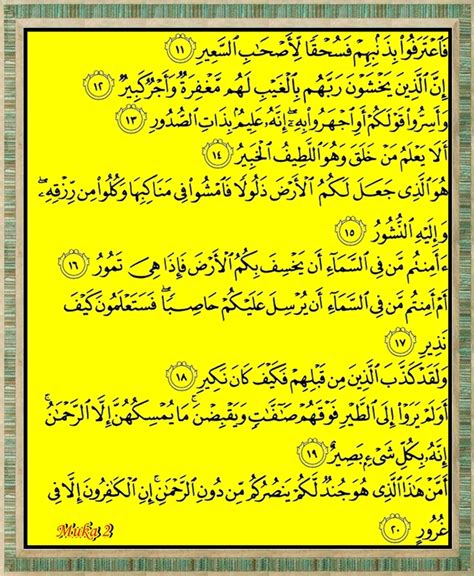 فَٱعْتَرَفُوا۟ بِذَنۢبِهِمْ فَسُحْقًا لِّأَصْحَٰبِ ٱلسَّعِيرِ ١١
إِنَّ ٱلَّذِينَ يَخْشَوْنَ رَبَّهُم بِٱلْغَيْبِ لَهُم مَّغْفِرَةٌ وَأَجْرٌ كَبِيرٌ ١٢
وَأَسِرُّوا۟ قَوْلَكُمْ أَوِ ٱجْهَرُوا۟ بِهِۦٓ إِنَّهُۥ عَلِيمٌۢ بِذَاتِ ٱلصُّدُورِ ١٣
أَلَا يَعْلَمُ مَنْ خَلَقَ وَهُوَ ٱللَّطِيفُ ٱلْخَبِيرُ ١٤
هُوَ ٱلَّذِى جَعَلَ لَكُمُ ٱلْأَرْضَ ذَلُولًا فَٱمْشُوا۟ فِى مَنَاكِبِهَا وَكُلُوا۟ مِن رِّزْقِهِۦ ۖ
وَإِلَيْهِ ٱلنُّشُورُ ١٥
ءَأَمِنتُم مَّن فِى ٱلسَّمَآءِ أَن يَخْسِفَ بِكُمُ ٱلْأَرْضَ فَإِذَا هِىَ تَمُورُ ١٦
أَمْ أَمِنتُم مَّن فِى ٱلسَّمَآءِ أَن يُرْسِلَ عَلَيْكُمْ حَاصِبًا ۖ فَسَتَعْلَمُونَ كَيْفَ
نَذِيرِ ١٧
وَلَقَدْ كَذَّبَ ٱلَّذِينَ مِن قَبْلِهِمْ فَكَيْفَ كَانَ نَكِيرِ ١٨
أَوَلَمْ يَرَوْا۟ إِلَى ٱلطَّيْرِ فَوْقَهُمْ صَٰٓفَّٰتٍ وَيَقْبِضْنَ ۚ مَا يُمْسِكُهُنَّ إِلَّا ٱلرَّحْمَٰنُ ۚ
إِنَّهُۥ بِكُلِّ شَىْءٍۭ بَصِيرٌ ١٩
أَمَّنْ هَٰذَا ٱلَّذِى هُوَ جُندٌ لَّكُمْ يَنصُرُكُم مِّن دُونِ ٱلرَّحْمَٰنِ ۚ إِنِ ٱلْكَٰفِرُونَ إِلَّا فِى
غُرُورٍ ٢٠
Muka 2